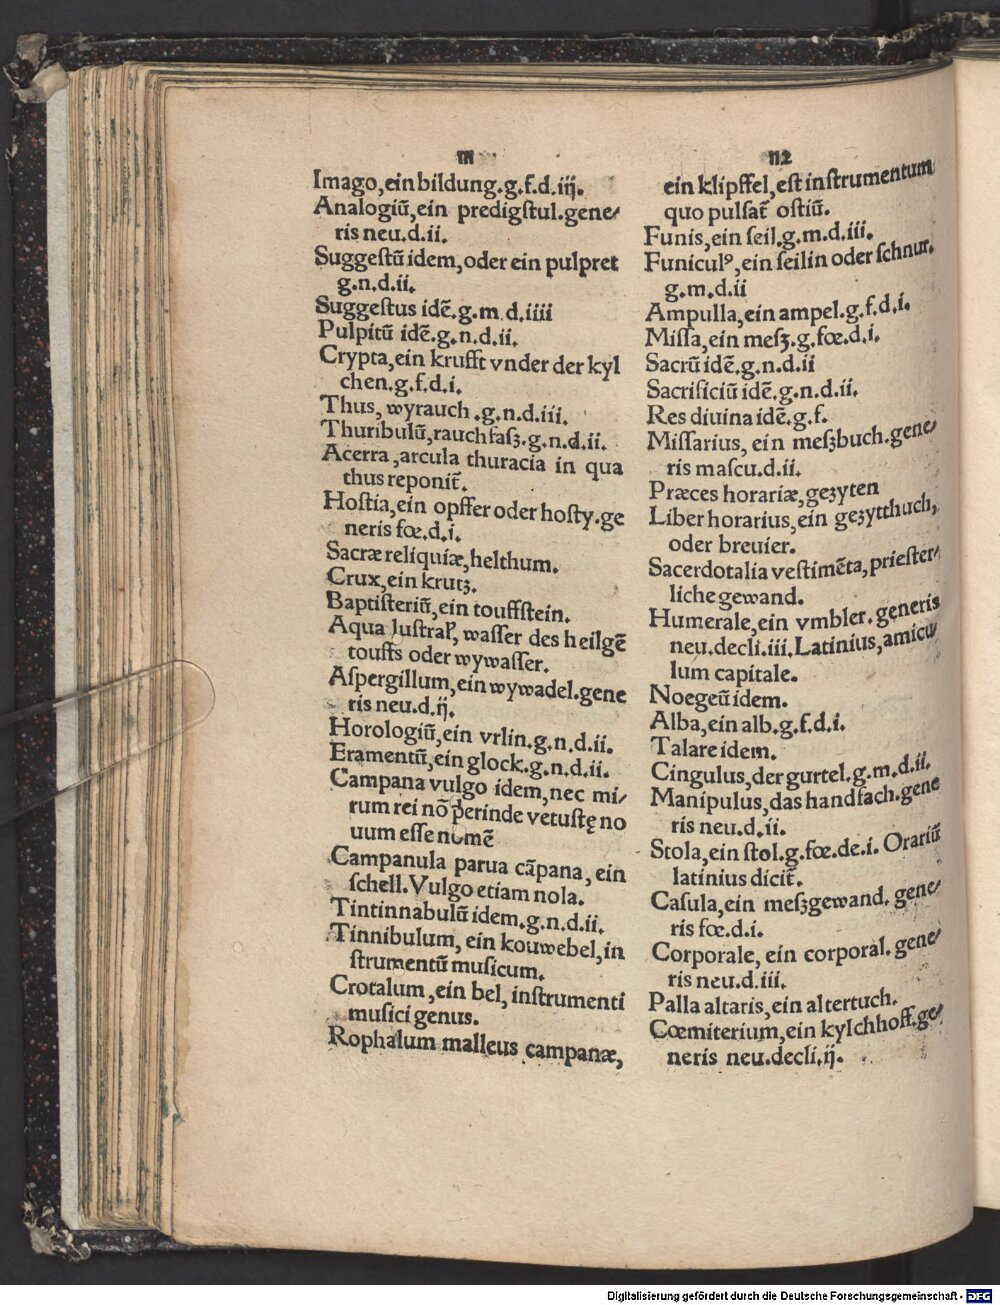 111
Imago,ein bildung.g.f.d.iij.
Analogiū,ein predigſtul.gene⸗
ris neu.d.ii.
Suggeſtū idem,oder ein pulpret
g.n.d.ii.
Suggeſtus idē.g.m d.iiii
Pulpitū idē.g.n.d.ii.
Crypta,ein krufft vnder der kyl
chen.g.f.d.i.
Thus, wyrauch .g.n.d.iii.
Thuribulū,rauchfaſʒ.g.n.d.ii.
Acerra ,arcula thuracia in qua
thus reponit̄.
Hoſtia,ein opffer oder hoſty.ge
neris fœ.d.i.
Sacræ reliquiæ,helthum.
Crux,ein krutʒ.
Baptiſteriū,ein touffſtein.
Aqua luſtral', waſſer des heilgē
touffs oder wywaſſer.
Aſpergillum,ein wywadel.gene
ris neu.d.ij.
Horologiū,ein vrlin.g.n.d.ii.
Eramentū,ein glock.g.n.d.ii.
Campana vulgo idem,nec mi⸗
rum rei nō perinde vetuſtę no
uum eſſe nomē
Campanula parua cāpana, ein
ſchell.Vulgo etiam nola.
Tintinnabulū idem.g.n.d.ii.
Tinnibulum, ein kouwebel,in
ſtrumentū muſicum.
Crotalum ,ein bel, inſtrumenti
muſici genus.
Rophalum malleus campanæ,
112
ein klipffel,eſt inſtrumentum
quo pulſat̄ oſtiū.
Funis,ein ſeil.g.m.d.iii.
Funiculꝰ,ein ſeilin oder ſchnur.
g.m.d.ii
Ampulla,ein ampel.g.f.d.i.
Miſſa,ein meſʒ.g.fœ.d.i.
Sacrū idē.g.n.d.ii
Sacrificiū idē.g.n.d.ii.
Res diuina idē.g.f.
Miſſarius, ein meſʒbuch.gene⸗
ris maſcu.d.ii.
Præces horariæ,geʒyten
Liber horarius,ein geʒytthuch,
oder breuier.
Sacerdotalia veſtimēta,prieſter⸗
liche gewand.
Humerale,ein vmbler.generis
neu.decli.iii.Latinius,amicu⸗
lum capitale.
Noegeū idem.
Alba,ein alb.g.f.d.i.
Talare idem.
Cingulus,der gurtel.g.m.d.ii.
Manipulus,das handfach.gene
ris neu.d.ii.
Stola,ein ſtol.g.fœ.de.i. Orariū
latinius dicit̄.
Caſula,ein meſʒgewand. gene⸗
ris fœ.d.i.
Corporale, ein corporal. gene⸗
ris neu.d.iii.
Palla altaris,ein altertuch.
Cœmiterium,ein kylchhoff.ge⸗
neris neu.decli.ij.
Digitalisierung gefördert durch die Deutsche Forschungsgemeinschaft - DFG